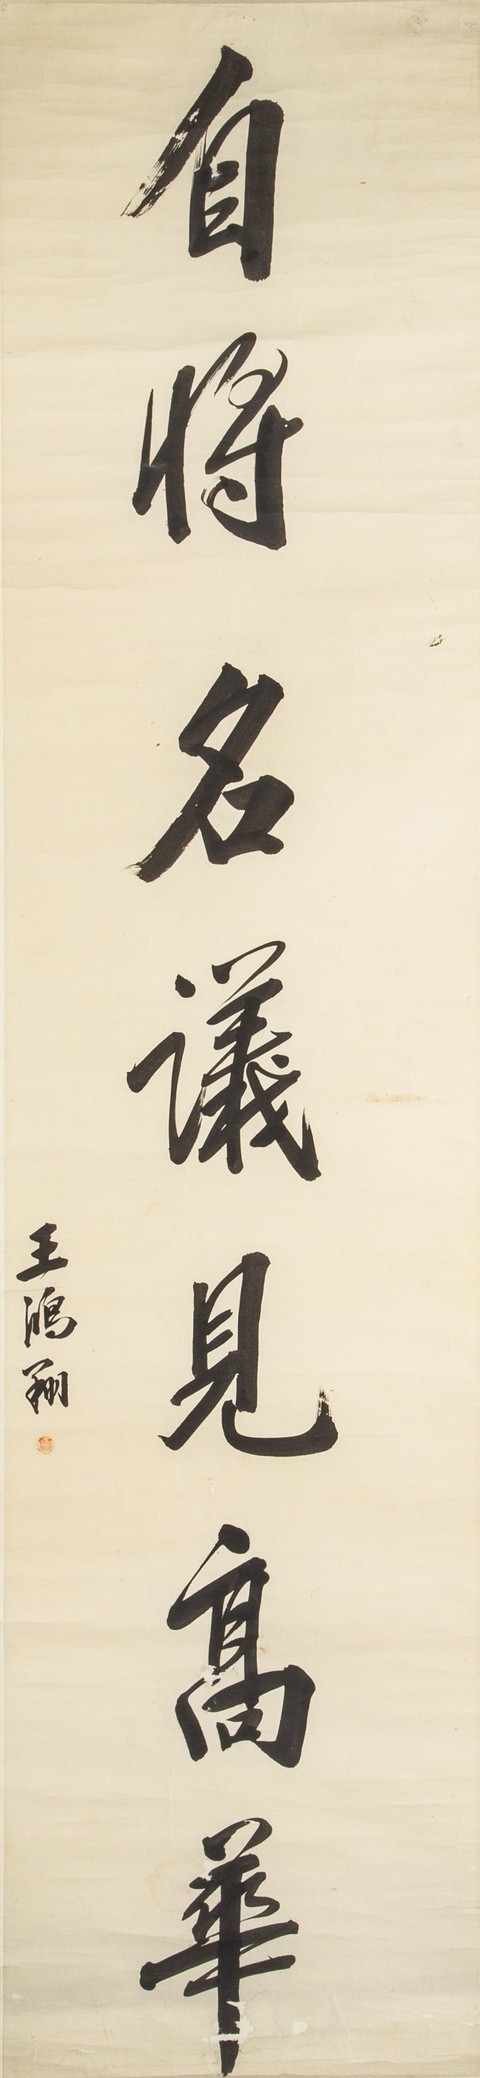 自將名議見高華
王鴻翔